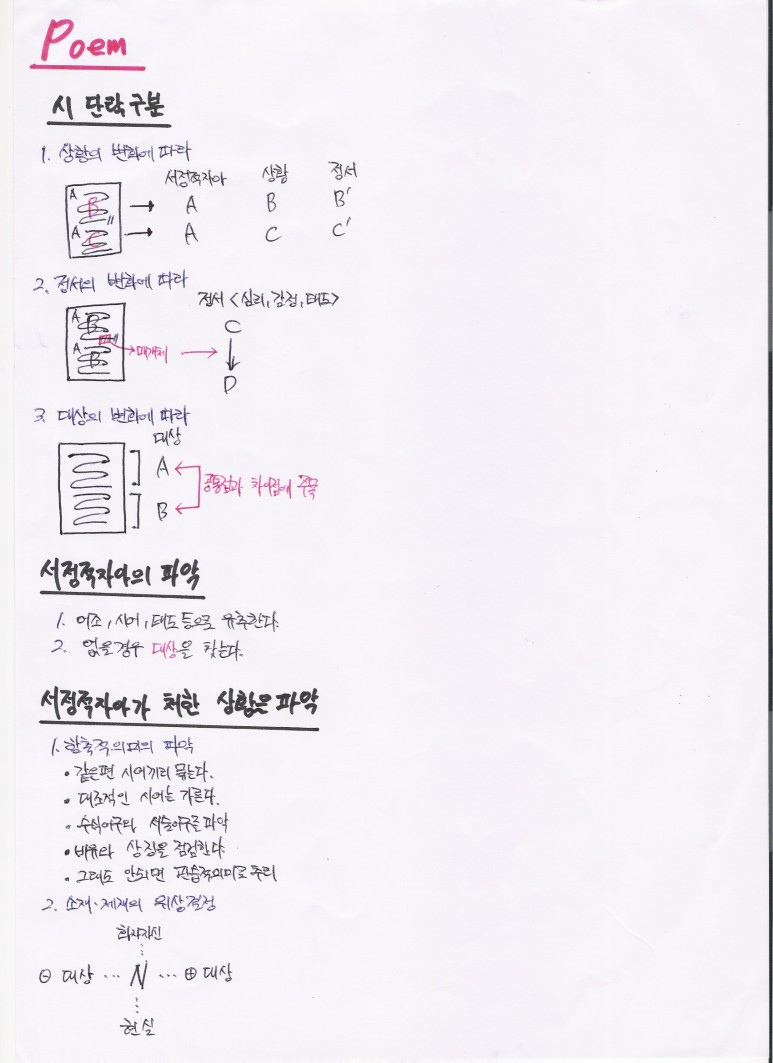 Poem
시 단락구분
1. 상황의 변화에 따라
서정적자아 상황 정서
A B → A B B'
A C → A C C'
2. 정서의 변화에 따라
정서 <심리, 감정, 태도>
A B C
매개체 →
A B D
3. 대상의 변화에 따라
대상
A
공통점과 차이점에 주목
B
서정적자아의 파악
1. 어조, 시어, 태도등으로 유추한다.
2. 없을경우 대상을 찾는다.
서정적자아가 처한 상황은 파악
1. 함축적의미의 파악
• 같은편 시어끼리 묶는다.
• 대조적인 시어는 가른다.
• 수식어구와, 서술어구를 파악
• 비유와 상징을 점검한다.
• 그래도 안되면 관습적의미로 추리
2. 소재·제재의 위상결정
화자자신
⊖ 대상 ... N ... ⊕ 대상
현실